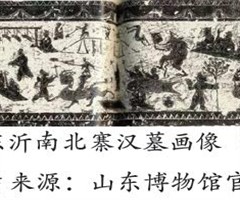 沂南北寨汉墓画像
来源：山东博物馆官